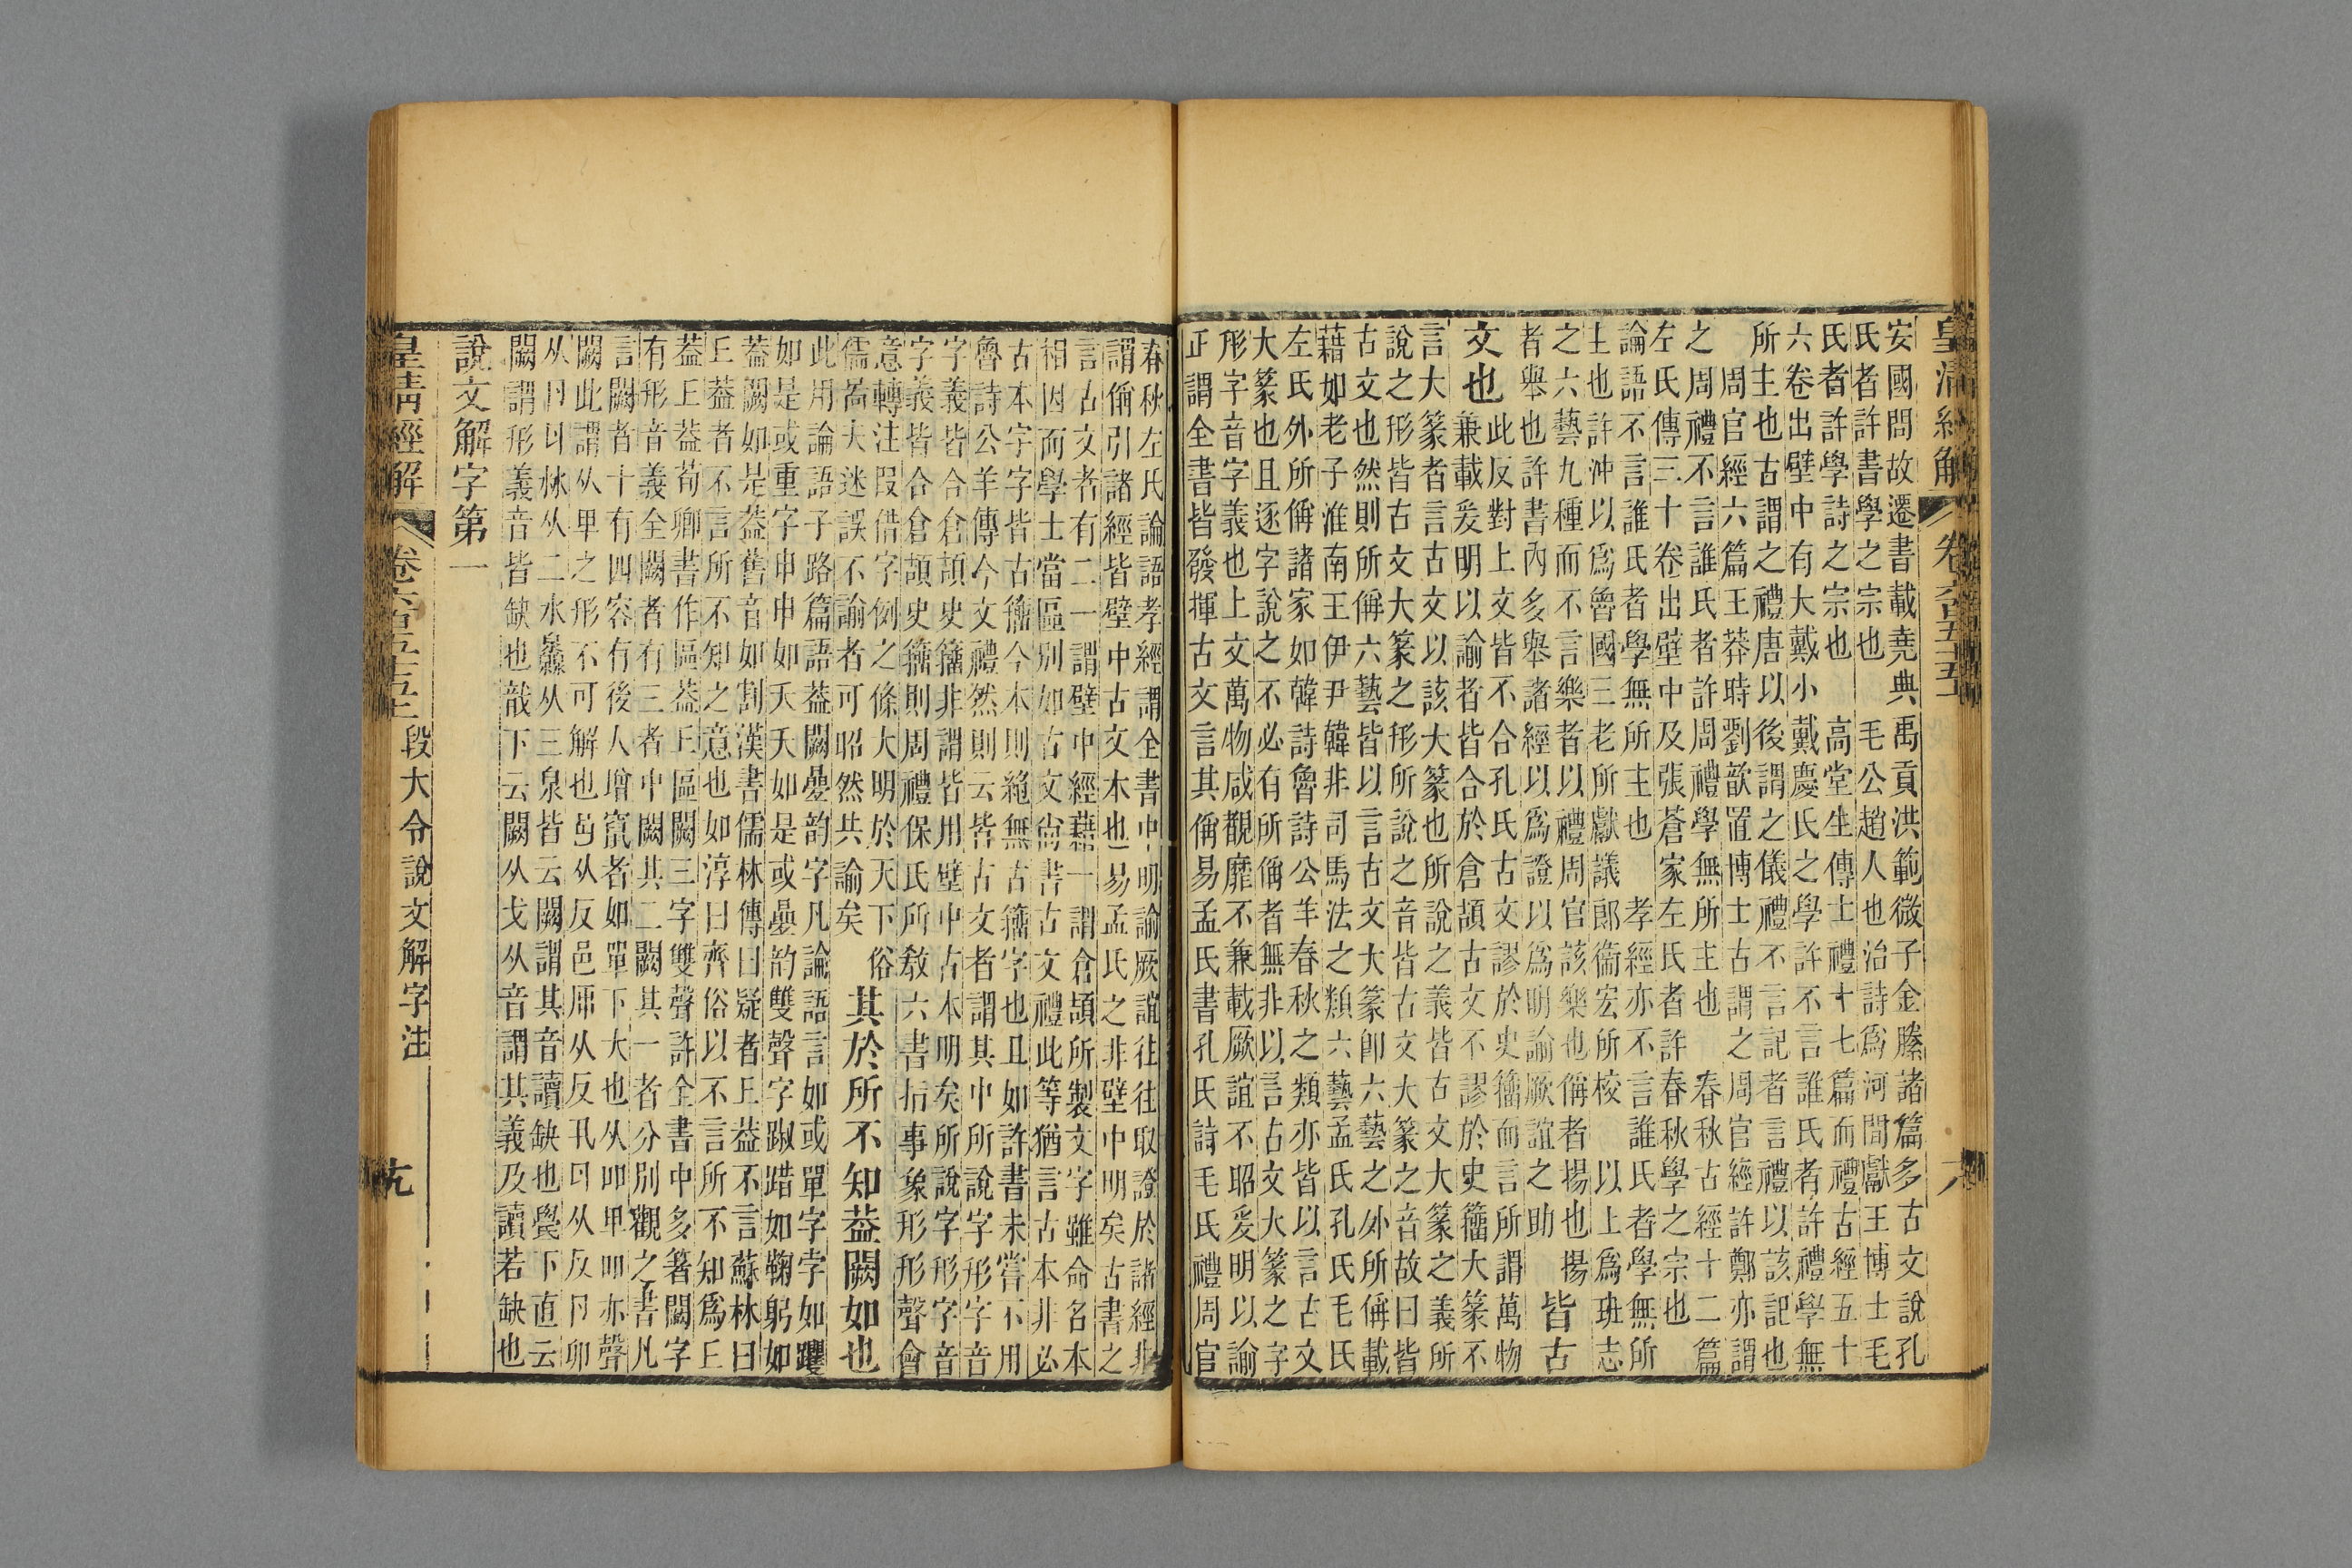 皇清經解 卷六百五十五
安國問故遷書載堯典禹貢洪範微子金縢諸篇多古文說孔
氏者許書學之宗也 毛公趙人也治詩爲河間獻王博士毛
氏者許學詩之宗也 高堂生傳士禮十七篇而禮古經五十
六卷出壁中有大戴小戴慶氏之學許不言誰氏者許禮學無
所主也古謂之禮唐以後謂之儀禮不言記者言禮以該記也
周官經六篇王莽時劉歆置博士古謂之周官經許鄭亦謂
之周禮不言誰氏者許周禮學無所主也 春秋古經十二篇
左氏傳三十卷出壁中及張蒼家左氏者許春秋學之宗也
論語不言誰氏者學無所主也 孝經亦不言誰氏者學無所
主也許沖以爲魯國三老所獻議郎衞宏所校 以上爲班志
之六藝九種而不言樂者以禮周官該樂也偁者揚也揚
者舉也許書內多舉諸經以爲證以爲明諭厥誼之助
皆古
文也
此反對上文皆不合孔氏古文謬於史籒而言所謂萬物
兼載爰明以諭者皆合於倉頡古文不謬於史籒大篆不
言大篆者言古文以該大篆也所說之義皆古文大篆之義所
說之形皆古文大篆之形所說之音皆古文大篆之音故曰皆
古文也然則所偁六藝皆以言古文大篆卽六藝之外所偁載
藉如老子淮南王伊尹韓非司馬法之類六藝孟氏孔氏毛氏
左氏外所偁諸家如韓詩魯詩公羊春秋之類亦皆以言古文
大篆也且逐字說之不必有所偁者無非以言古文大篆之字
形字音字義也上文萬物咸覩靡不兼載厥誼不昭爰明以諭
正謂全書皆發揮古文言其偁易孟氏書孔氏詩毛氏禮周官
春秋左氏論語孝經謂全書中明諭厥誼往往取證於諸經非
謂偁引諸經皆壁中古文本也易孟氏之非壁中明矣古書之
言古文者有二一謂壁中經藉一謂倉頡所製文字雖命名本
相因而學士當區別如古文尚書古文禮此等猶言古本非必
古本字字皆古籒今本則絕無古籒字也且如許書未嘗不用
魯詩公羊傳今文禮然則云皆古文者謂其中所說字形字音
字義皆合倉頡史籒非謂皆用壁中古本明矣所說字形字音
字義皆合倉頡史籒則周禮保氏所敎六書指事象形形聲會
意轉注叚借字例之條大明於天下俗
儒啚夫迷誤不諭者可昭然共諭矣
其於所不知蓋闕如也
此用論語子路篇語蓋闕曡韵字凡論語言如或單字孛如躩
如是或重字申申如夭夭如是或曡韵雙聲字踧踖如鞠躬如
蓋闕如是蓋舊音如割漢書儒林傳曰疑者丘蓋不言蘇林曰
丘蓋者不言所不知之意也如淳曰齊俗以不言所不知爲丘
蓋丘蓋荀卿書作區蓋丘區闕三字雙聲許全書中多著闕字
有形音義全闕者有三者中闕其二闕其一者分別觀之書凡
言闕者十有四容有後人增竄者如單下大也从吅甲吅亦聲
闕此謂从甲之形不可解也从反邑从反丮从反卩卯
从沝从二水灥从三泉皆云闕謂其音讀缺也下直云
闕謂形義音皆缺也戠下云闕从戈从音謂其義及讀若缺也
說文解字第一
皇清經解 卷六百五十五 段大令說文解字注